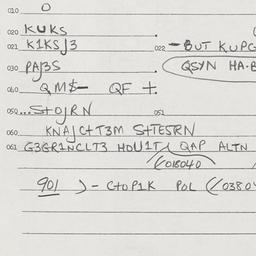 010 O
020 KUKS
021 K1KSJ3 022 - BUT KUPG
030 PAJ3S QSYN HA.B
060 QM$- QF +.
050...S+OJRN 051
060 KNAJC+T3M S+TESRN
061 G3GR1NCLT3 HDU1T QAP ALTN
(/018040
901 ) - C+OP1K POL (/03804